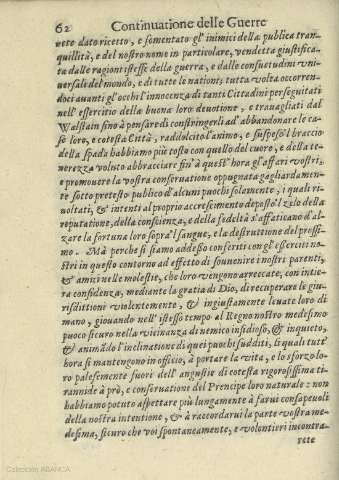 62 Continuatione delle Guerre
uete dato ricetto, e fomentato gl'inimici della publica tran-
quillità, e del nostro nome in particolare, vendetta giustifica-
ta dalle ragioni istesse della guerra, e dalle consuetudini vni-
uersali del mondo, e di tutte le nationi; tutta volta occorren-
doci auanti gl'occhi l'innocenza di tanti Cittadini perseguitati
nell'essercitio della buona loro deuotione, e trauagliati dal
Walstain sino à pensare di constringerli ad'abbandonare le ca-
se loro, e cotesta Città, raddolcito l'animo, e suspeso'l braccio
della spada habbiamo più tosto con quello del cuore, e della te-
nerezza voluto abbracciare sin'à quest'hora gl'affari vostri,
e promouere la vostra conseruatione oppugnata gagliardamen-
te sotto pretesto publico d'alcuni puochi solamente, i quali ri-
uoltati, & intenti al proprio accrescimento deposto'l zelo della
reputatione, della conscienza, e della fedeltà s'affaticano d'al-
zare la fortuna loro sopra'l sangue, e la destruttione del prossi-
mo. Mà perche si siamo addesso conferiti con gl'esserciti no-
stri in questo contorno ad effetto di souuenire i nostri parenti,
& amici nelle molestie, che loro vengono arreccate, con intie-
ra confidenza, mediante la gratia di Dio, di recuperare le giu-
risdittioni violentemente, & ingiustamente leuate loro di
mano, giouando nell'istesso tempo al Regno nostro medesimo
puoco sicuro nella vicinanza di nemico insidioso, & inquieto,
& animādo l'inclinatione di quei puochi sudditi, li quali tutt'
hora si mantengono in officio, à portare la vita, e lo sforzo lo-
ro palesemente fuori dell'angustie di cotesta rigorosissima ti-
rannide à prò, e conseruatione del Prencipe loro naturale: non
habbiamo potuto aspettare più lungamente à farui consapeuoli
della nostra intentione, & à raccordarui la parte vostra me-
desima, sicuro che voi spontaneamente, e volontieri incontra-
rete
Colección ABANCA